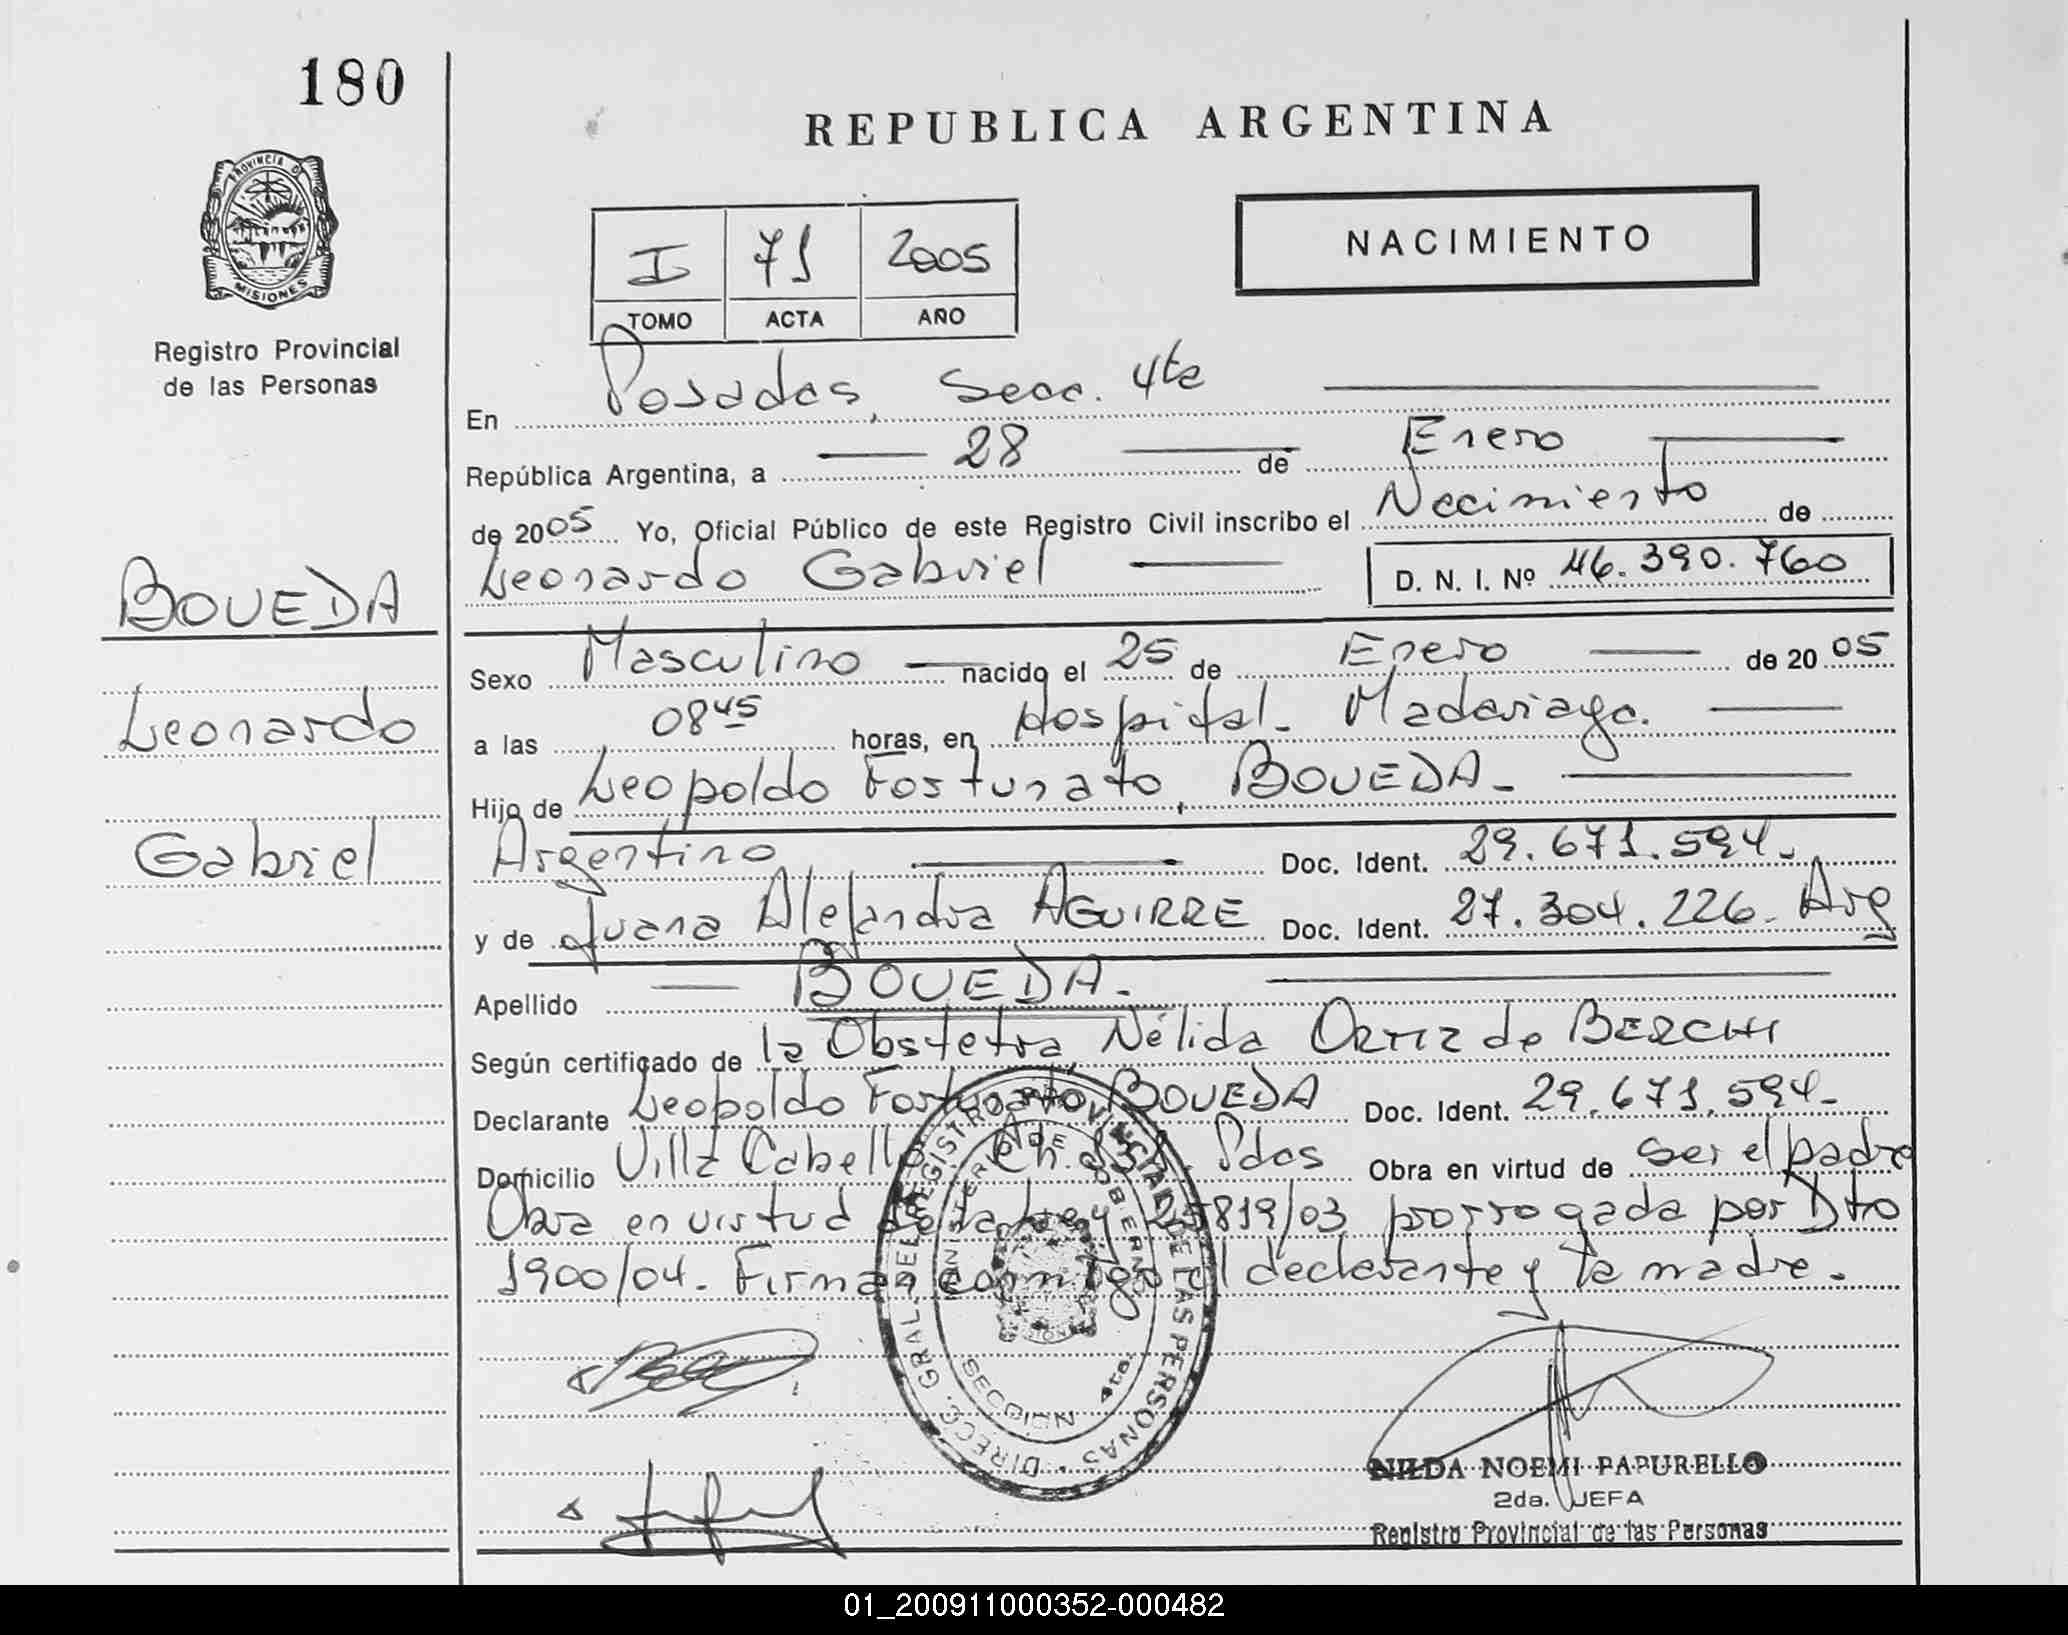 180
REPUBLICA ARGENTINA
PROVINCIA D
MISIONES
Registro Provincial
de las Personas
NACIMIENTO
I 71 2005
TOMO ACTA AÑO
En Posadas, Secc. 4ta
República Argentina, a 28 de Enero
de 2005 Yo, Oficial Público de este Registro Civil inscribo el Nacimiento de
Leonardo Gabriel D. N. I. Nº 46.390.760
BOVEDA
Leonardo
Gabriel
Sexo Masculino nacido el 25 de Enero de 2005
a las 0845 horas, en Hospital Madariaga.
Hijo de Leopoldo Fortunato, BOVEDA.
Argentino Doc. Ident. 29.671.594.
y de Juana Alejandra AGUIRRE Doc. Ident. 27.304.226. Arg
Apellido BOVEDA.
Según certificado de la Obstetra, Nélida ORTIZ de BERCHI
Declarante Leopoldo Fortunato BOVEDA Doc. Ident. 29.671.594.
Domicilio Villa Cabello, Ch. Pdas Obra en virtud de ser el padre
Obra en virtud de la Ley 25819/03 prorrogada por Dto
1900/04. Firman conmigo el declarante y la madre.
DIRECC. GRAL. DEL REGISTRO PROVINCIAL DE LAS PERSONAS
MINISTERIO DE GOBIERNO
SECCION 4ta.
NILDA NOEMI PAPURELLO
2da. JEFA
Registro Provincial de las Personas
01_200911000352-000482